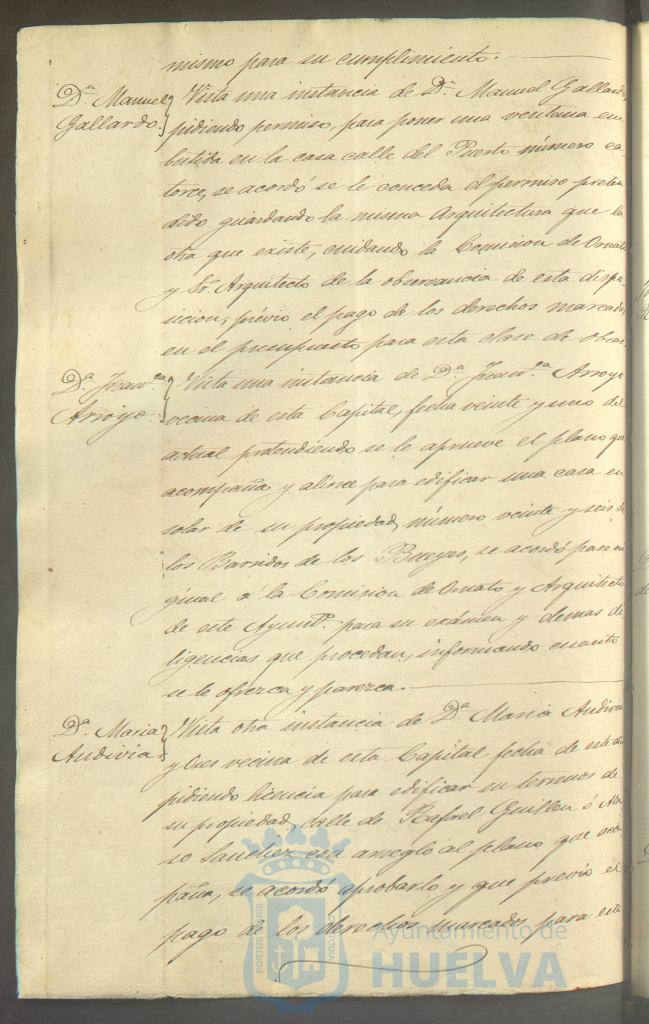 mismo para su cumplimiento.
Dn. Manuel
Gallardo.
Vista una instancia de Dn. Manuel Gallardo,
pidiendo permiso, para poner una ventana em
butida en la casa calle del Puerto número ca-
torce, se acordó se le conceda el permiso preten
dido guardando la misma Arquitectura que la
otra que existe, cuidando la Comision de Ornato
y Sr. Arquitecto de la observancia de esta dispo-
sicion, prévio el pago de los derechos marcados
en el presupuesto para esta clase de obras.
Da. Franca.
Arroyo.
Vista una instancia de Da. Franca. Arroyo
vecina de esta Capital, fecha veinte y uno del
actual pretendiendo se le apruebe el plano que
acompaña y alinee para edificar una casa en
solar de su propiedad, número veinte y seis de
los Barridos de los Bueyes, se acordó pase ori
ginal á la Comision de Ornato y Arquitecto
de este Ayuntº. para su exámen y demas di
ligencias que procedan, informando cuanto
se le ofrezca y parezca.
Da. Maria
Audivia.
Vista otra instancia de Da. Maria Audivia
y vecina de esta Capital fecha de este dia
pidiendo licencia para edificar en terrenos de
su propiedad, calle de Rafael Guillen ó Alon
so Sanchez con arreglo al plano que acom
paña, se acordó aprobarlo y que prévio el
pago de los derechos marcados para este
PORTUS MARIS
CUSTODIA
Ayuntamiento de
HUELVA